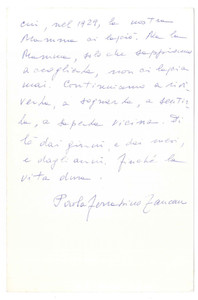 cui, nel 1929, la nostra
Mamma ci lasciò. Ma la
Mamma, solo che sappiamo
accoglierla, non ci lascia
mai. Continuiamo a
a seguirla, a sentir
la, a saperla vicina. Di
là dai giorni, e dai mesi,
e dagli anni. Finché la
vita dura.
Paola